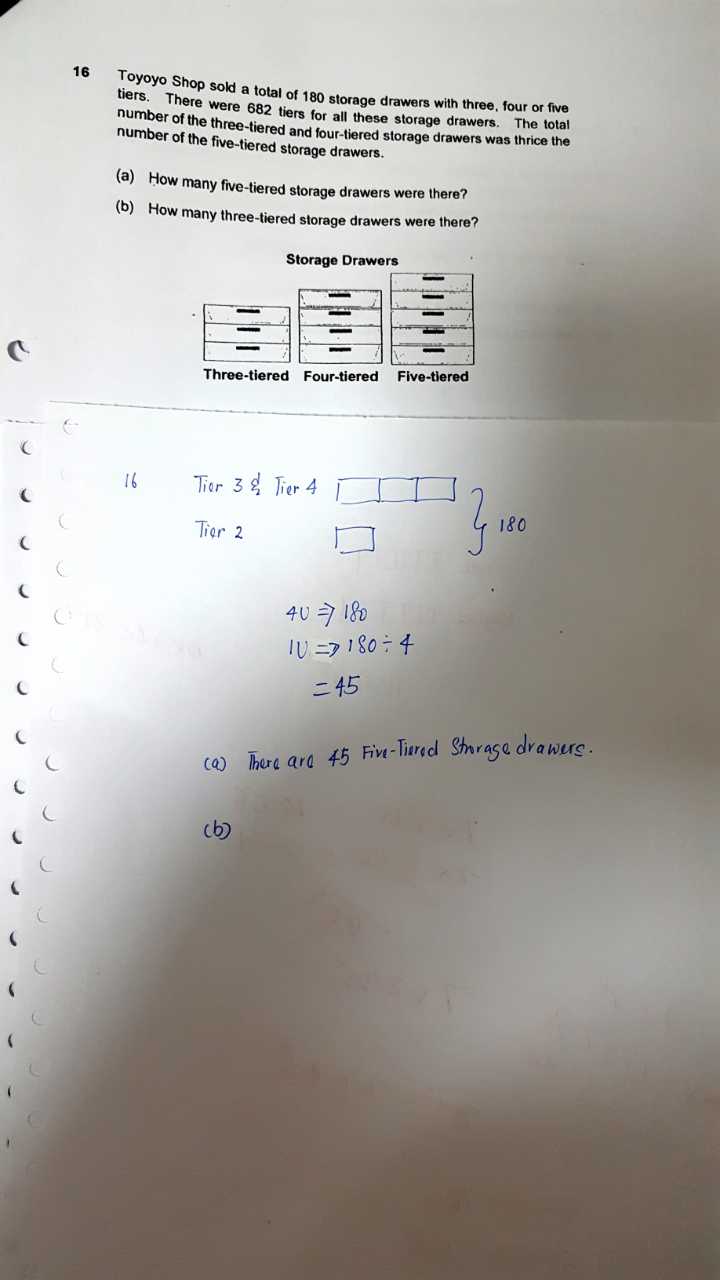 16 Toyoyo Shop sold a total of 180 storage drawers with three, four or five
tiers. There were 682 tiers for all these storage drawers. The total
number of the three-tiered and four-tiered storage drawers was thrice the
number of the five-tiered storage drawers.
(a) How many five-tiered storage drawers were there?
(b) How many three-tiered storage drawers were there?
Storage Drawers
Three-tiered Four-tiered Five-tiered
16 Tier 3 & Tier 4
Tier 2
180
4U ⇒ 180
1U ⇒ 180 ÷ 4
= 45
(a) There are 45 Five-Tiered Storage drawers.
(b)